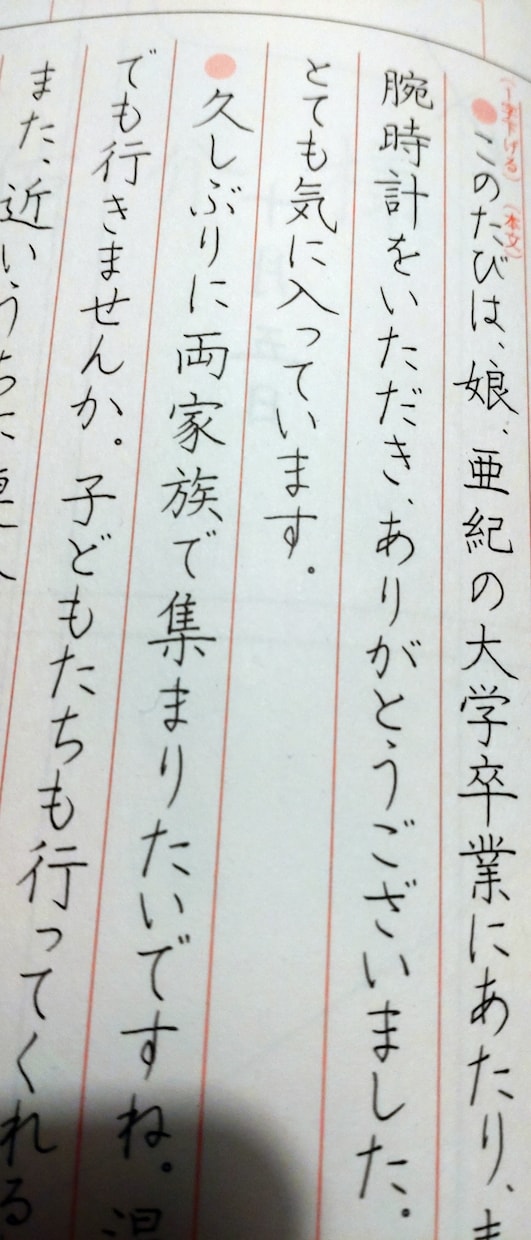 (一字下げる) (本文)
このたびは、娘、亜紀の大学卒業にあたり、
腕時計をいただき、ありがとうございました。
とても気に入っています。
久しぶりに両家族で集まりたいですね。
でも行きませんか。子どもたちも行ってくれる
また、近いうちに